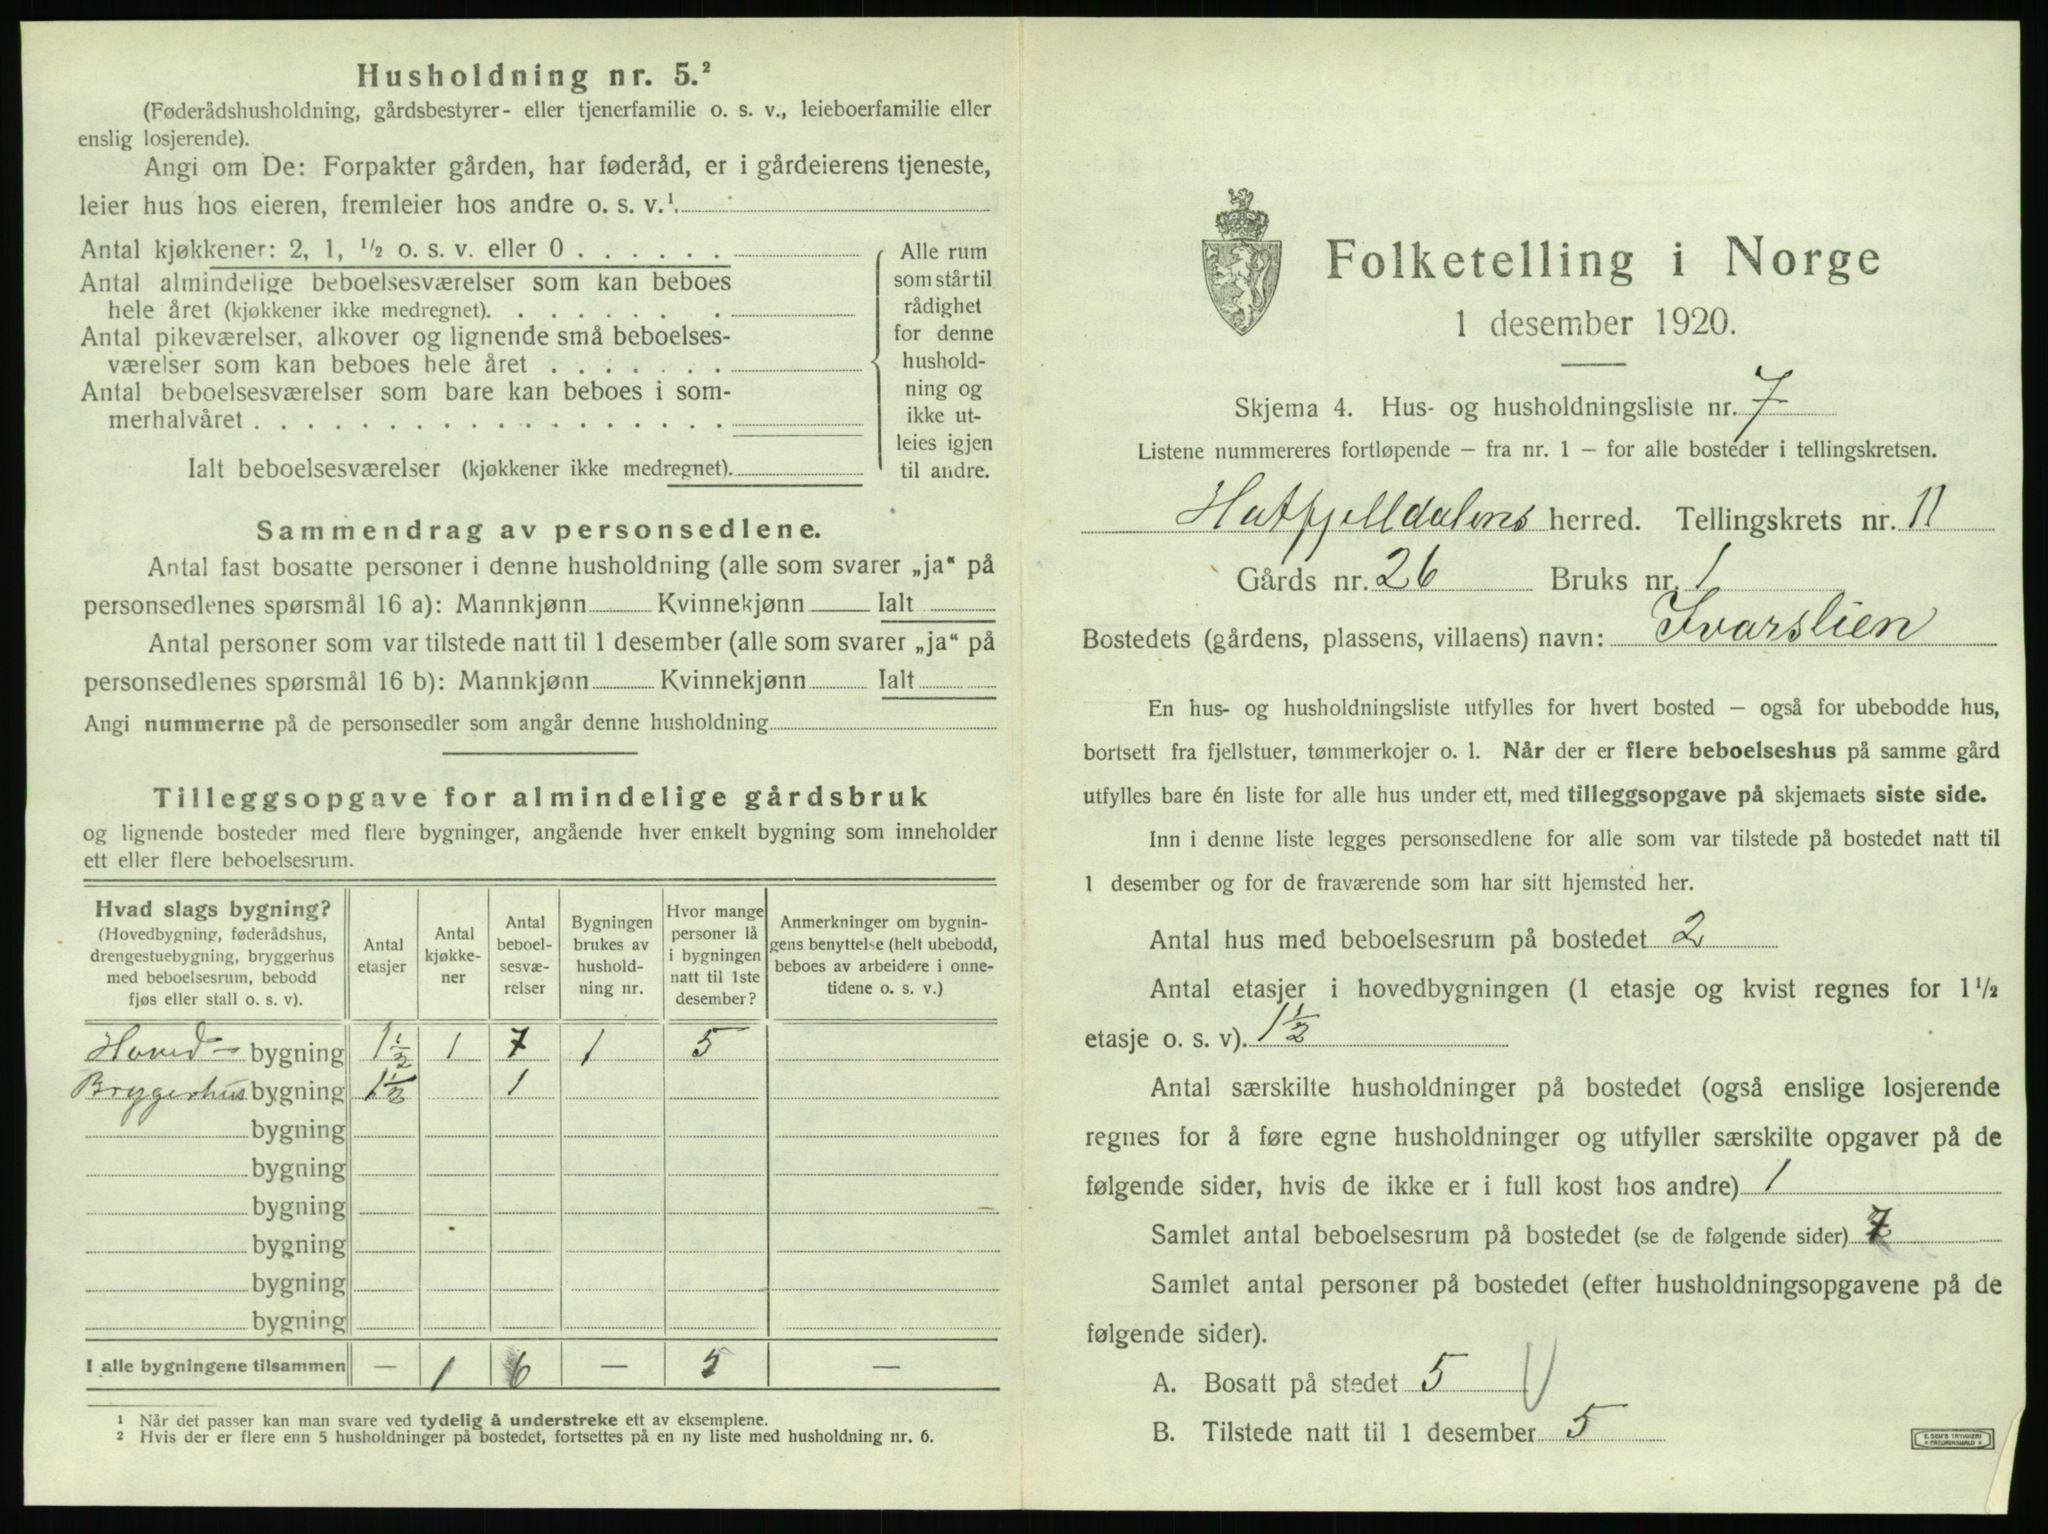 Husholdning nr. 5.²
(Føderådshusholdning, gårdsbestyrer- eller tjenerfamilie o. s. v., leieboerfamilie eller
enslig losjerende).
Angi om De: Forpakter gården, har føderåd, er i gårdeierens tjeneste,
leier hus hos eieren, fremleier hos andre o. s. v.¹
Antal kjøkkener: 2, 1, ½ o. s. v. eller 0 . . . . . .
Antal almindelige beboelsesværelser som kan beboes
hele året (kjøkkener ikke medregnet). . . . . . . .
Antal pikeværelser, alkover og lignende små beboelses-
værelser som kan beboes hele året . . . . . . .
Antal beboelsesværelser som bare kan beboes i som-
merhalvåret . . . . . . . . . . . . . . . . . .
Ialt beboelsesværelser (kjøkkener ikke medregnet).
Alle rum
som står til
rådighet
for denne
hushold-
ning og
ikke ut-
leies igjen
til andre.
Sammendrag av personsedlene.
Antal fast bosatte personer i denne husholdning (alle som svarer „ja“ på
personsedlenes spørsmål 16 a): Mannkjønn Kvinnekjønn Ialt
Antal personer som var tilstede natt til 1 desember (alle som svarer „ja“ på
personsedlenes spørsmål 16 b): Mannkjønn Kvinnekjønn Ialt
Angi nummerne på de personsedler som angår denne husholdning
Tilleggsopgave for almindelige gårdsbruk
og lignende bosteder med flere bygninger, angående hver enkelt bygning som inneholder
ett eller flere beboelsesrum.
Hvad slags bygning?
(Hovedbygning, føderådshus,
drengestuebygning, bryggerhus
med beboelsesrum, bebodd
fjøs eller stall o. s. v).
Antal
etasjer
Antal
kjøkke-
ner
Antal
beboel-
sesvæ-
relser
Bygningen
brukes av
hushold-
ning nr.
Hvor mange
personer lå
i bygningen
natt til 1ste
desember?
Anmerkninger om bygnin-
gens benyttelse (helt ubebodd,
beboes av arbeidere i onne-
tidene o. s. v.)
Hoved- bygning 1½ 1 7 1 5
Bryggerhus bygning 1½ 1
bygning
bygning
bygning
bygning
bygning
bygning
I alle bygningene tilsammen — 1 6 — 5 —
¹ Når det passer kan man svare ved tydelig å understreke ett av eksemplene.
² Hvis der er flere enn 5 husholdninger på bostedet, fortsettes på en ny liste med husholdning nr. 6.
Folketelling i Norge
1 desember 1920.
Skjema 4. Hus- og husholdningsliste nr. 7
Listene nummereres fortløpende – fra nr. 1 – for alle bosteder i tellingskretsen.
Hatfjelldalens herred. Tellingskrets nr. 11
Gårds nr. 26 Bruks nr. 1
Bostedets (gårdens, plassens, villaens) navn: Ivarslien
En hus- og husholdningsliste utfylles for hvert bosted – også for ubebodde hus,
bortsett fra fjellstuer, tømmerkojer o. l. Når der er flere beboelseshus på samme gård
utfylles bare én liste for alle hus under ett, med tilleggsopgave på skjemaets siste side.
Inn i denne liste legges personsedlene for alle som var tilstede på bostedet natt til
1 desember og for de fraværende som har sitt hjemsted her.
Antal hus med beboelsesrum på bostedet 2
Antal etasjer i hovedbygningen (1 etasje og kvist regnes for 1½
etasje o. s. v). 1½
Antal særskilte husholdninger på bostedet (også enslige losjerende
regnes for å føre egne husholdninger og utfyller særskilte opgaver på de
følgende sider, hvis de ikke er i full kost hos andre) 1
Samlet antal beboelsesrum på bostedet (se de følgende sider) 7
Samlet antal personer på bostedet (efter husholdningsopgavene på de
følgende sider).
A. Bosatt på stedet 5
B. Tilstede natt til 1 desember 5